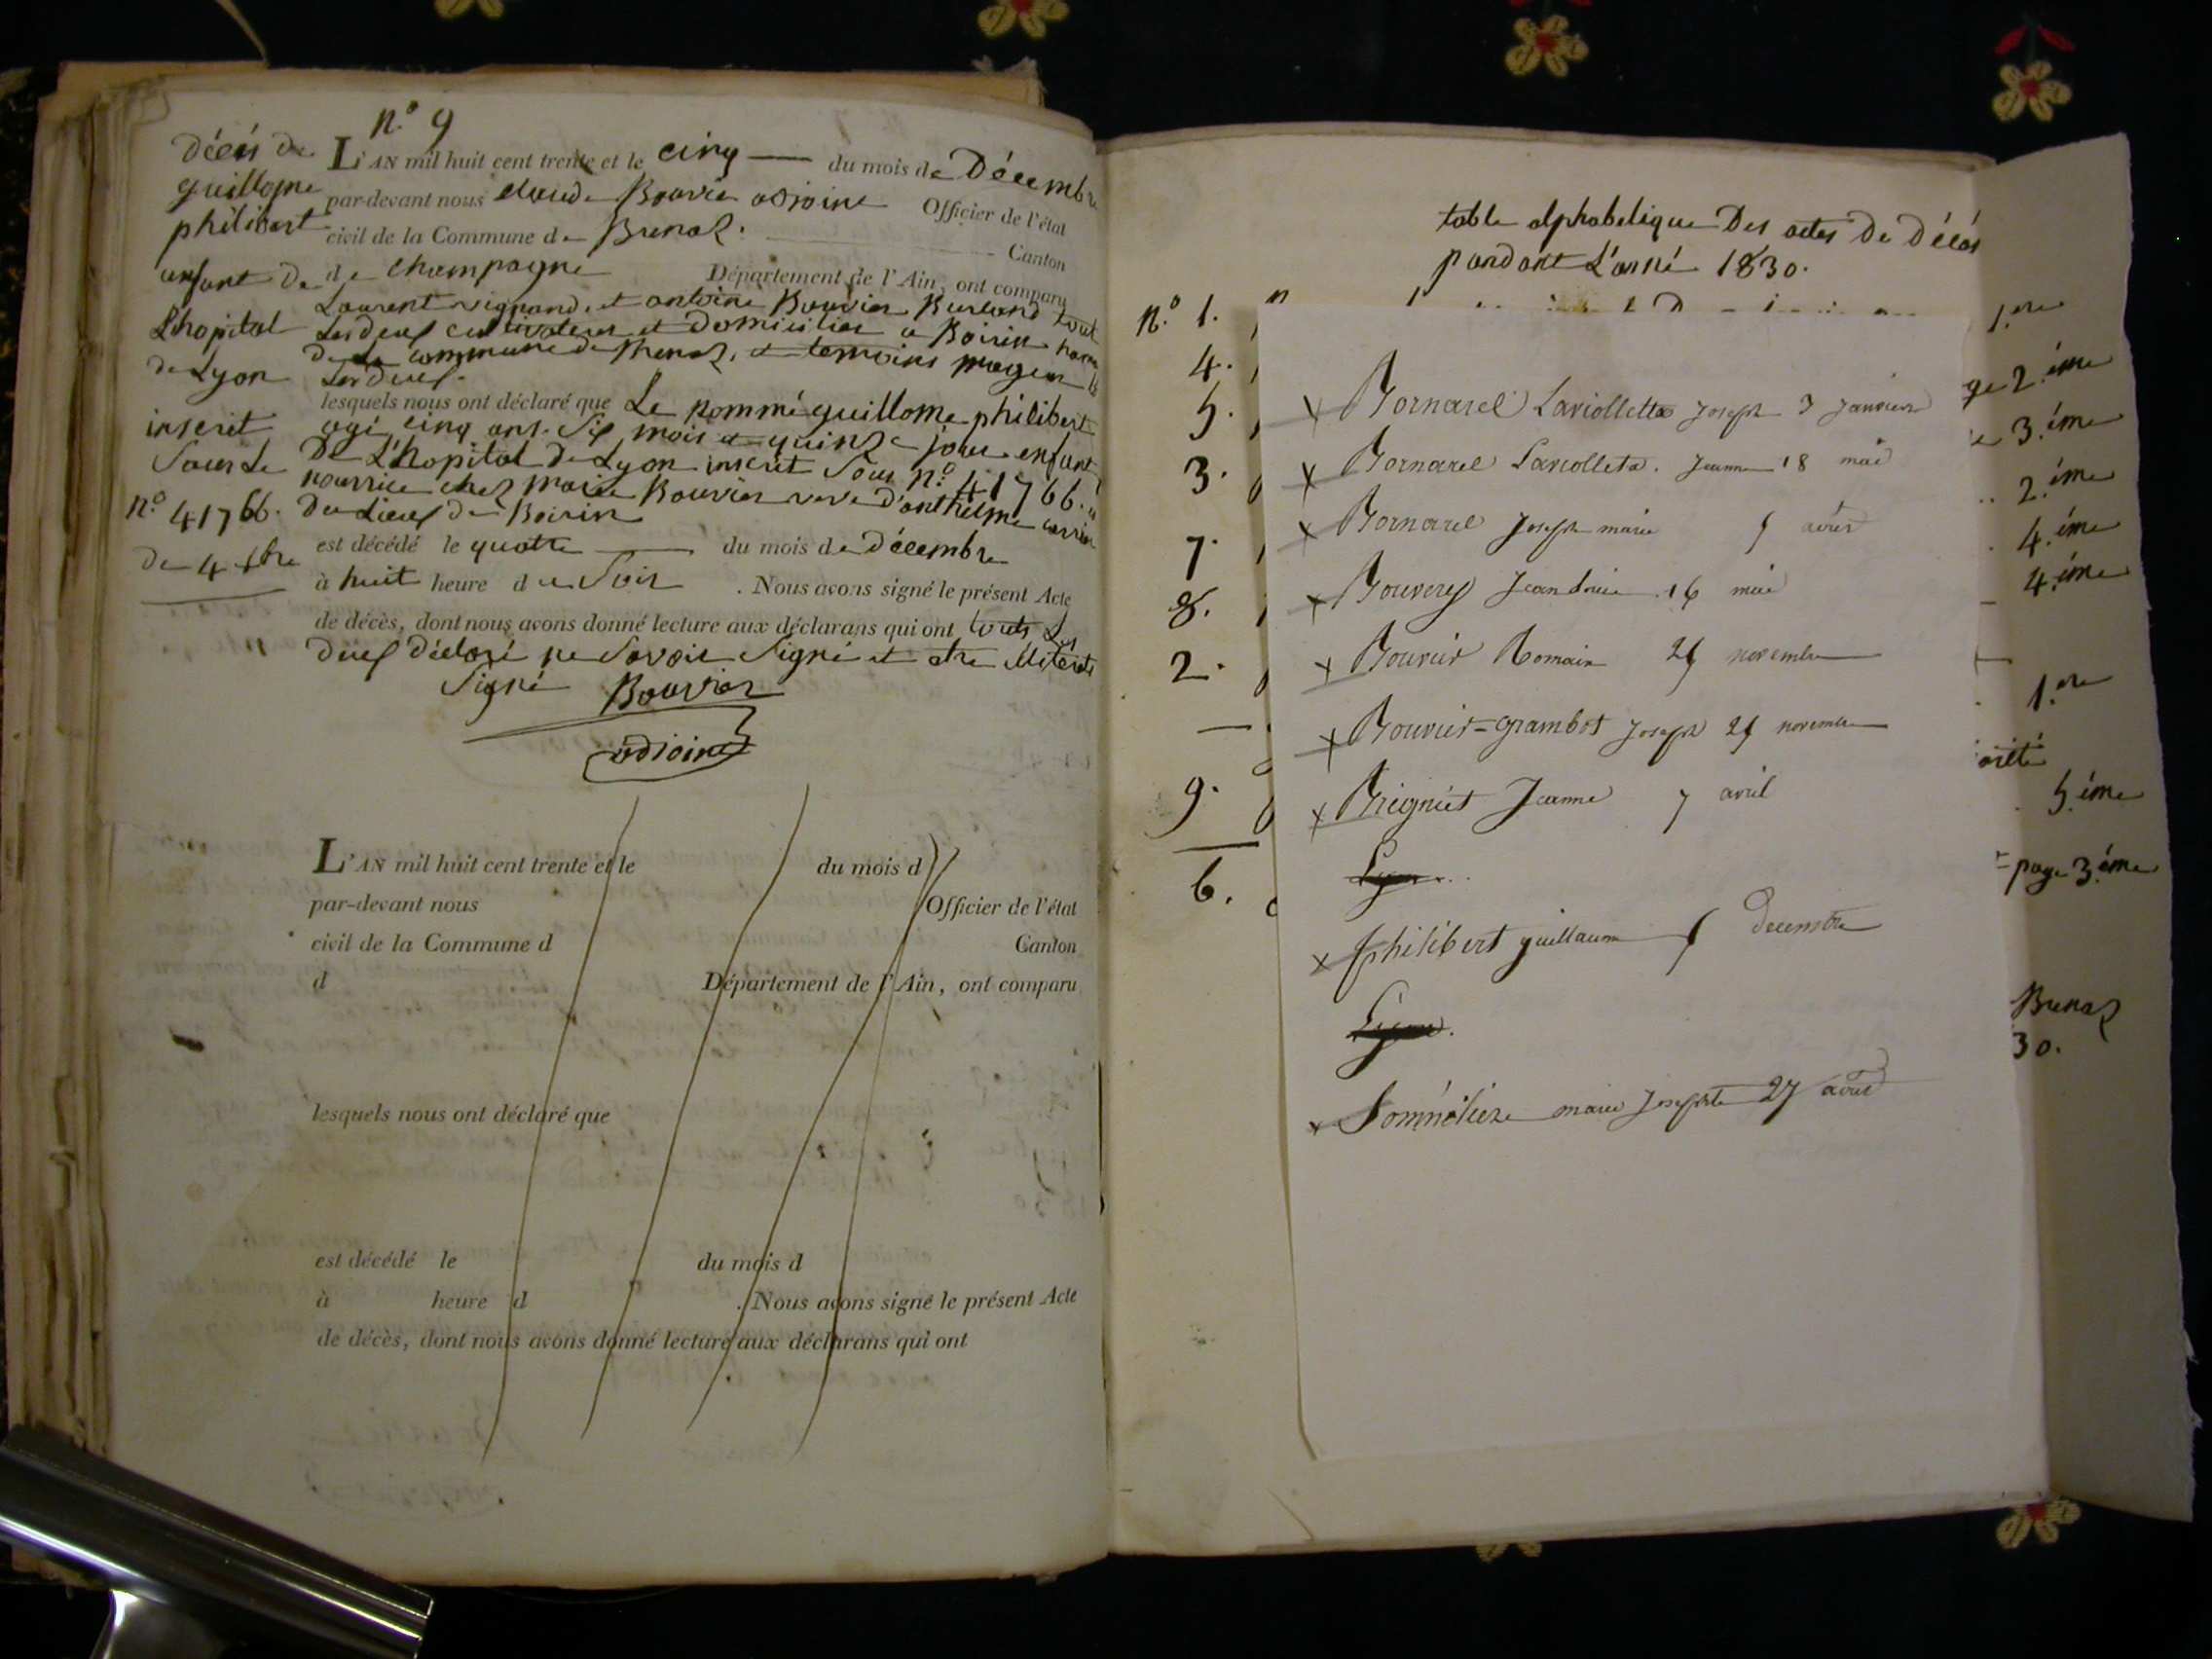 n.o 9
décès de
guillome
philibert
enfant de
L'hopital
de Lyon
inscrit
Sous Le
n.o 41766.
De 4 xbre
L'AN mil huit cent trente et le cinq du mois de Décembre
par-devant nous claude Bouvier adjoint Officier de l'état
civil de la Commune de Brenaz. Canton
de champagne Département de l'Ain, ont comparu
Laurent vignand, et antoine Bouvier Burland tout
Les deux cultivateurs et Domiciliés a Boirin
De La commune de Brenaz, et temoins mageur
Les deux.
lesquels nous ont déclaré que Le nommé guillome philibert
agé cinq ans. Six mois et quinze jours enfant
De L'hopital De Lyon inscrit Sous n.o 41766.
nourrice chez marie Bouvier veve D'anthelme
Du Lieux De Boirin
est décédé le quatre du mois de Décembre
à huit heure du Soir . Nous avons signé le présent Acte
de décès, dont nous avons donné lecture aux déclarans qui ont touts Les
deux déclaré ne Savoir Signé et
Signé Bouvier
adjoint
L'AN mil huit cent trente et le du mois d
par-devant nous Officier de l'état
civil de la Commune d Canton
d Département de l'Ain, ont comparu
lesquels nous ont déclaré que
est décédé le du mois d
à heure d . Nous avons signé le présent Acte
de décès, dont nous avons donné lecture aux déclarans qui ont
table alphabetique Des actes De Décès
pandant L'anné 1830.
n.o 1.
4.
5.
3.
7.
8.
2.
9.
6.
x Bornarel Laviollette Joseph 3 Janvier
x Bornarel Laviolleta. Jeanne 18 mai
x Bornarel Joseph marie 5 aout
x Bouverey Jeandrine 16 mai
x Bouvier Romain 25 novembre
x Bouvier=grambot Joseph 25 novembre
x Breigniet Jeanne 7 avril
x philibert guillaume 5 decembre
x Somméliere marie Josephte 27 aout
1.re
ge 2.éme
e 3.éme
2.éme
4.éme
4.éme
1.re
5.éme
page 3.éme
Brenaz
30.